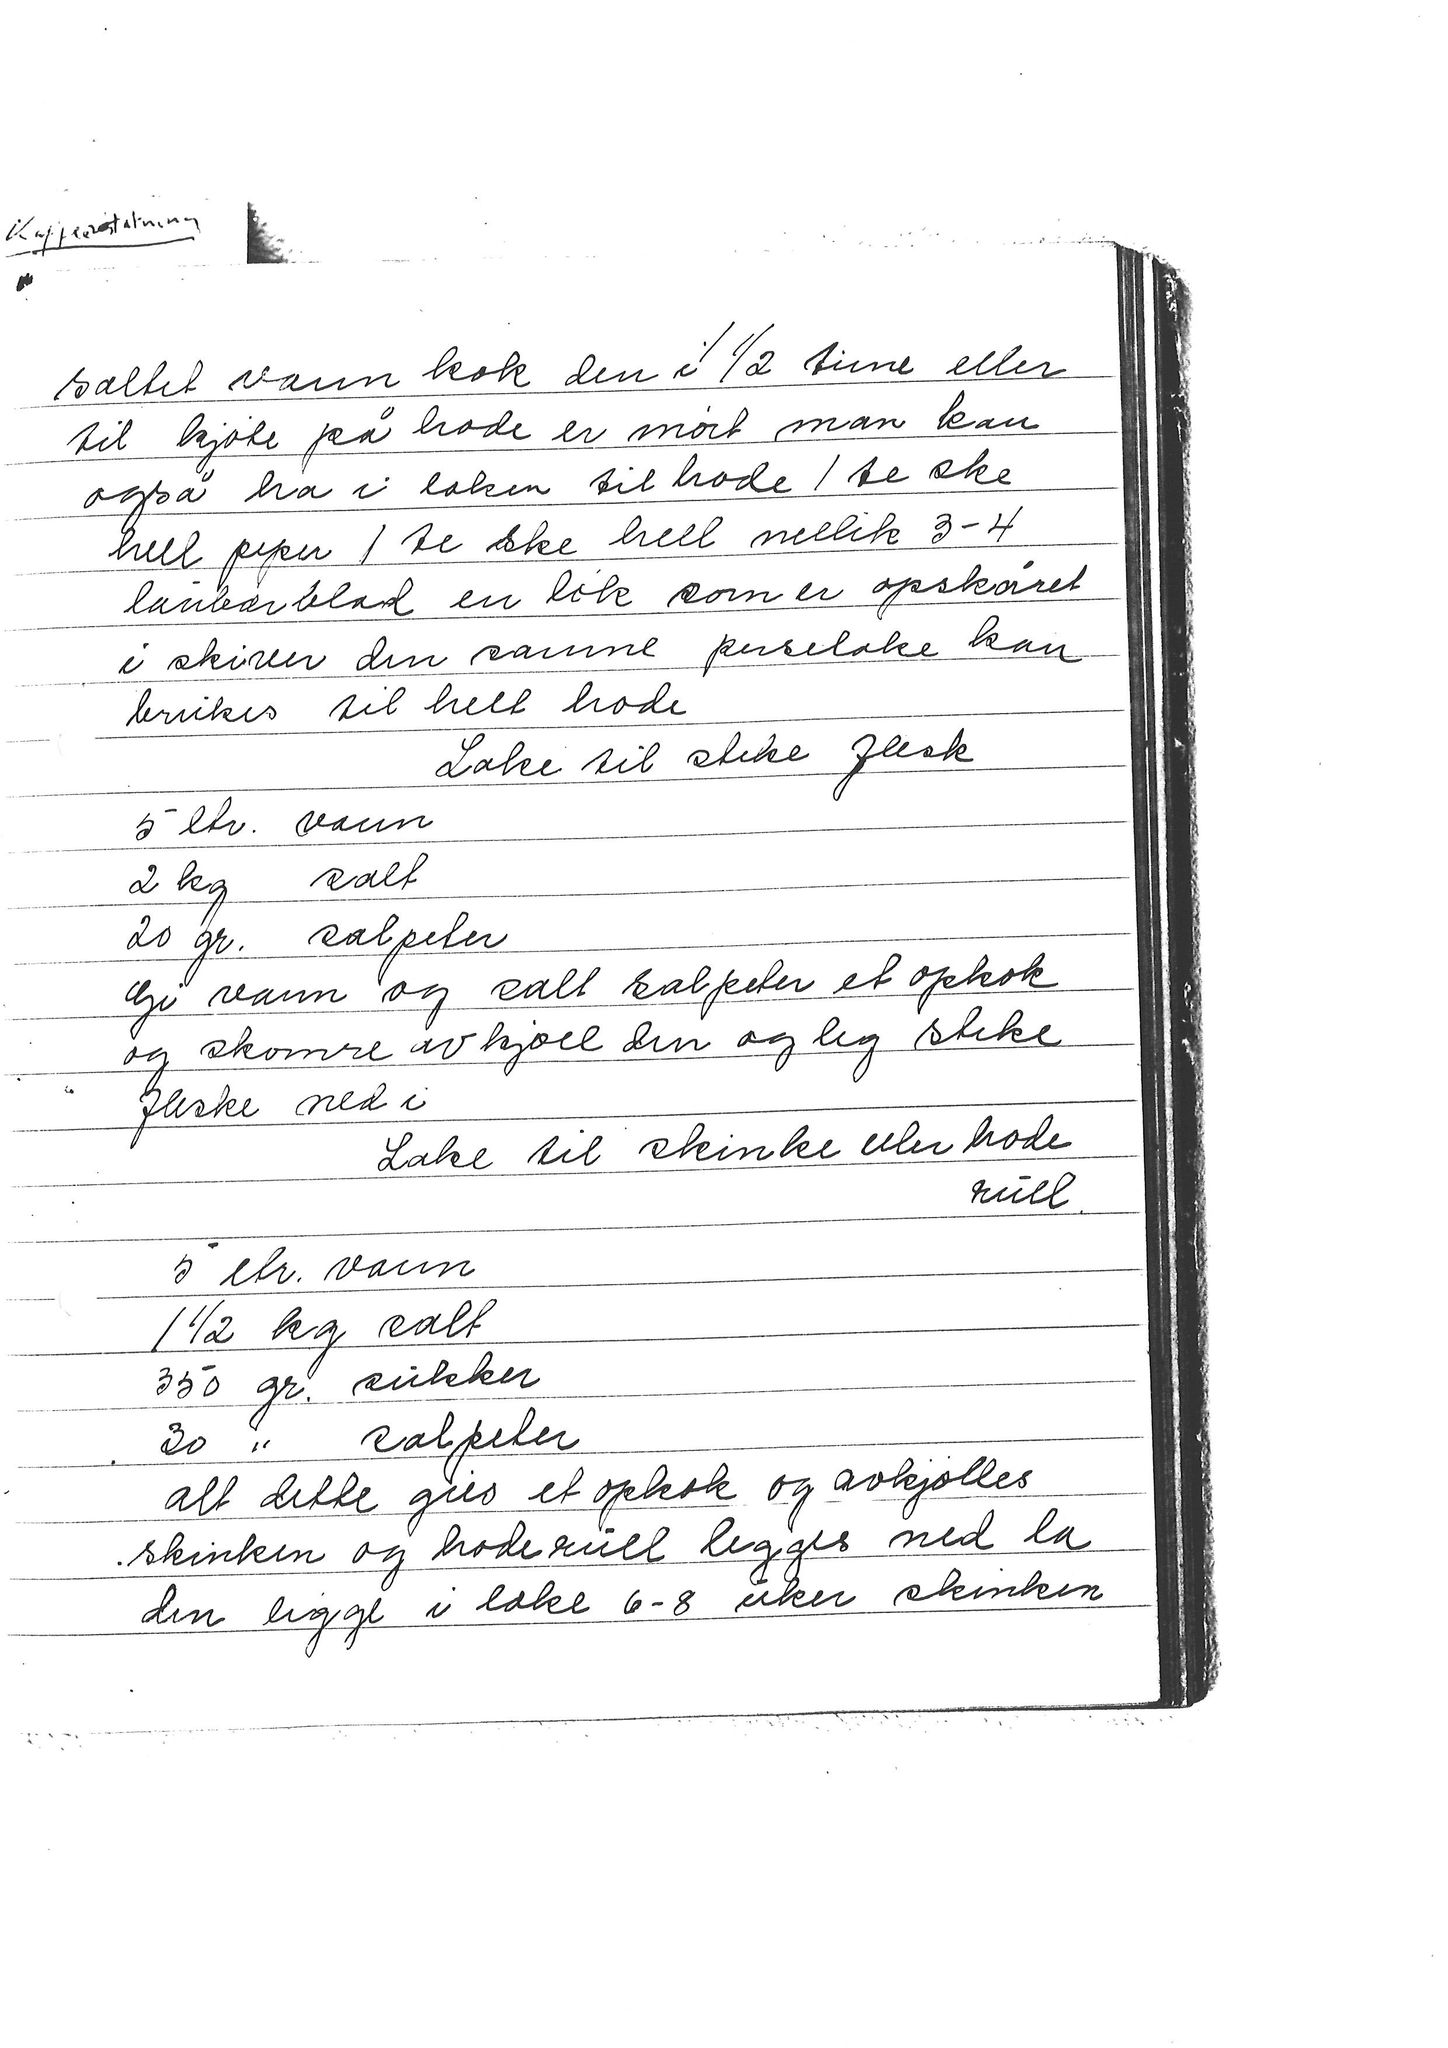 Kaffeerstatning
saltet vann kok den i 1 1/2 time eller
til kjöte på hode er mört man kan
også ha i laken til hode 1 te ske
hell peper 1 te ske hell nellik 3-4
laubærblad en lök som er opskåret
i skiver den samme perselake kan
brukes til helt hode
Lake til steke flesk
5 ltr. vann
2 kg salt
20 gr. salpeter
Gi vann og salt salpeter et opkok
og skomre avkjoel den og leg steke
fleske ned i
Lake til skinke eller hode
rull.
5 ltr. vann
1 1/2 kg salt
350 gr. sukker
30 " salpeter
alt dette gies et opkok og avkjölles
skinken og hoderull legges ned la
den ligge i lake 6-8 uker skinken